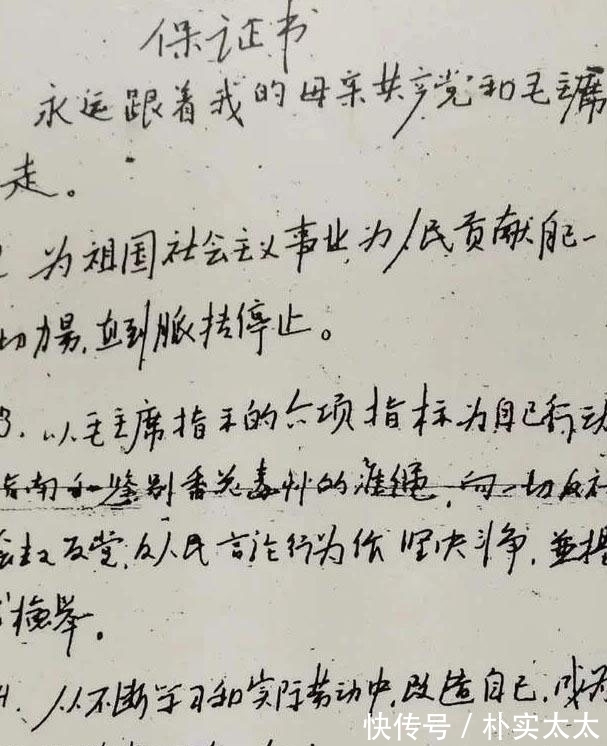 保证书
永远跟着我的母亲共产党和毛主席
走。
为祖国社会主义事业,为人民贡献自己一
切力量,直到脉搏停止。
3. 以毛主席指示的六项指标为自己行动
指南和鉴别香花毒草的准绳,向一切反社
会主义反党,反人民言论行为作坚决斗争,并揭
检举。
4. 从不断学习和实际劳动中,改造自己,成为
快传号/朴实太太